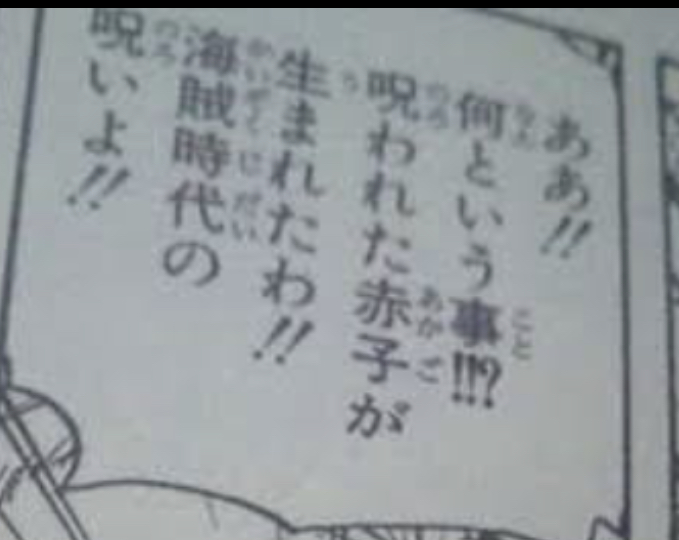 ああ!!
何という事!!?
呪われた赤子が
生まれたわ!!
海賊時代の
呪いよ!!